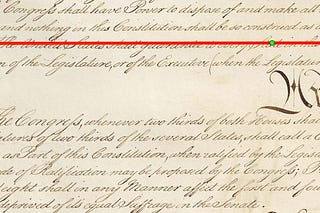 Congress shall have Power to dispose of and make all
and nothing in this Constitution shall be so construed as t
n of the Legislature, or of the Executive (when the Legislatur
he Congress, whenever two thirds of both Houses shall
ations of two thirds of the several States, shall call a C
as Part of this Constitution, when ratified by the Legisl
ode of Ratification may be proposed by the Congress; P
eight shall in any Manner affect the first and fou
deprived of its equal Suffrage in the Senate.